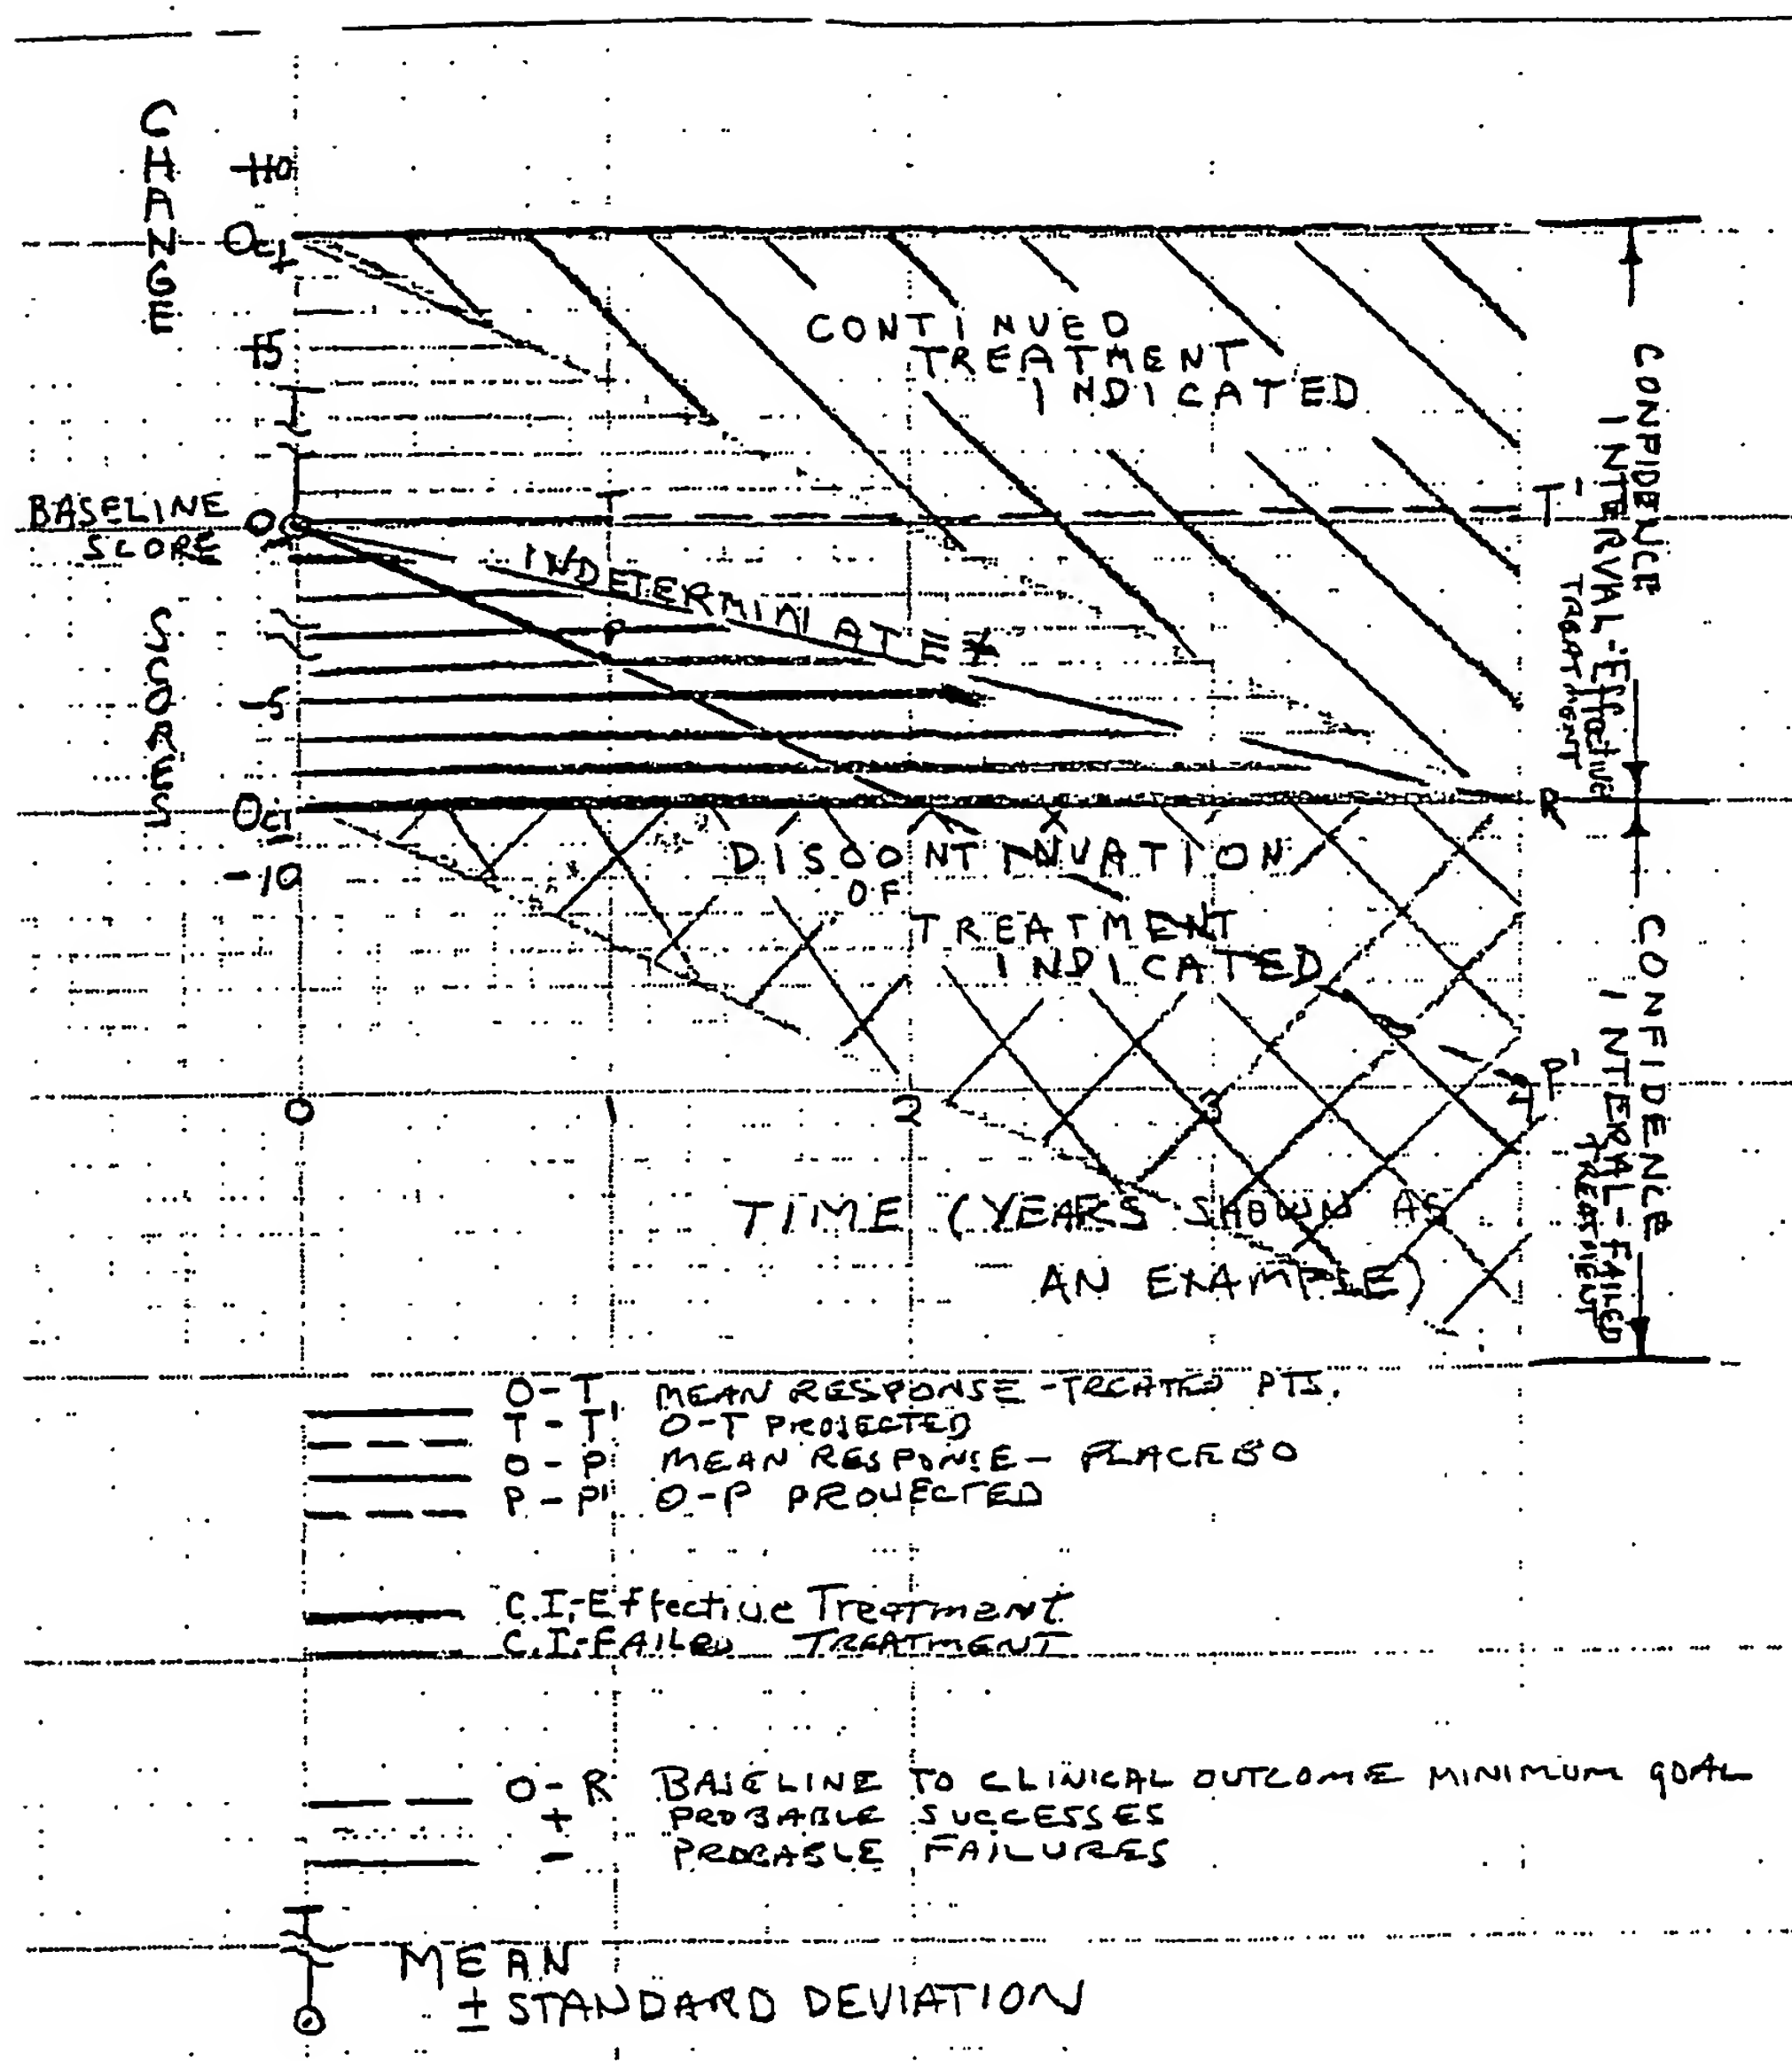 CHANGE
+10
Oci+
+5
CONTINUED
TREATMENT
INDICATED
BASELINE
SCORE
O
T
T'
INDETERMINATE
P
SCORES
-5
Oci-
R
-10
DISCONTINUATION
OF
TREATMENT
INDICATED
P'
0
1
2
3
4
CONFIDENCE
INTERVAL-Effective
TREATMENT
CONFIDENCE
INTERVAL-FAILED
TREATMENT
TIME (YEARS SHOWN AS
AN EXAMPLE)
O-T MEAN RESPONSE-TREATED PTS.
T-T' O-T PROJECTED
O-P MEAN RESPONSE- PLACEBO
P-P' O-P PROJECTED
C.I.-Effective Treatment
C.I.-FAILED TREATMENT
O-R BASELINE TO CLINICAL OUTCOME MINIMUM GOAL
+ PROBABLE SUCCESSES
- PROBABLE FAILURES
MEAN
± STANDARD DEVIATION